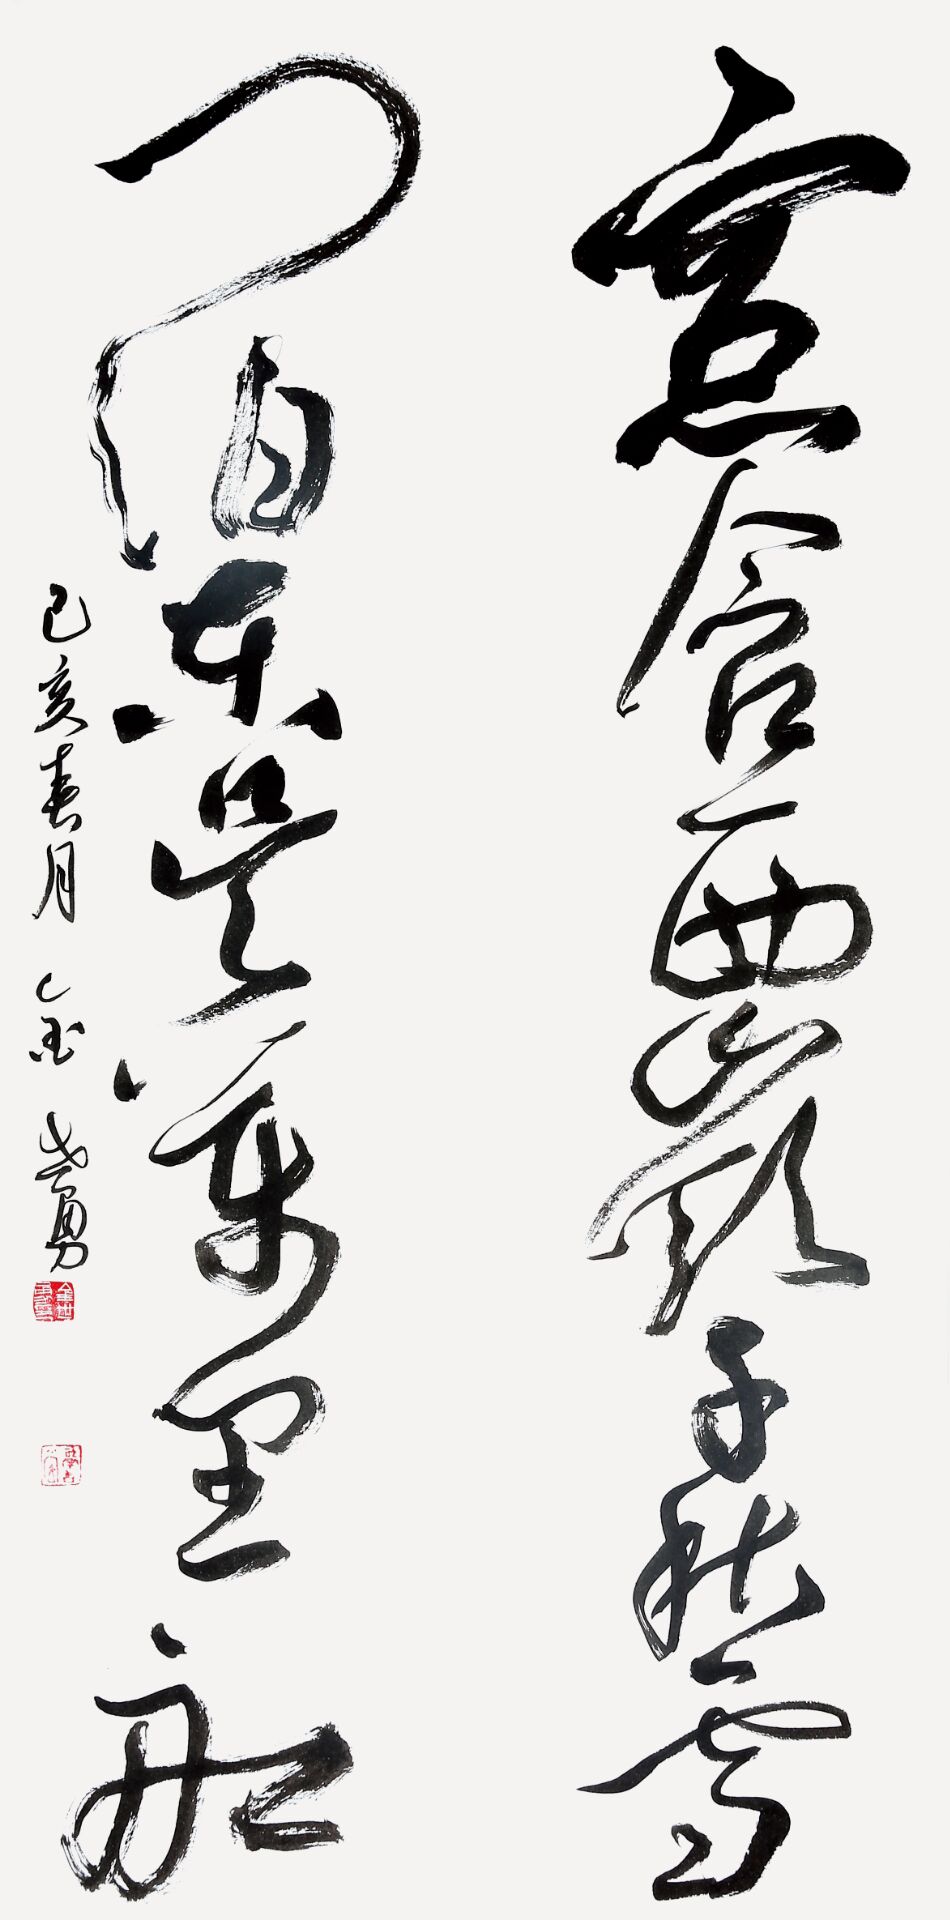 窓含西岭千秋雪
门泊东吴万里船
己亥春月 金世勇